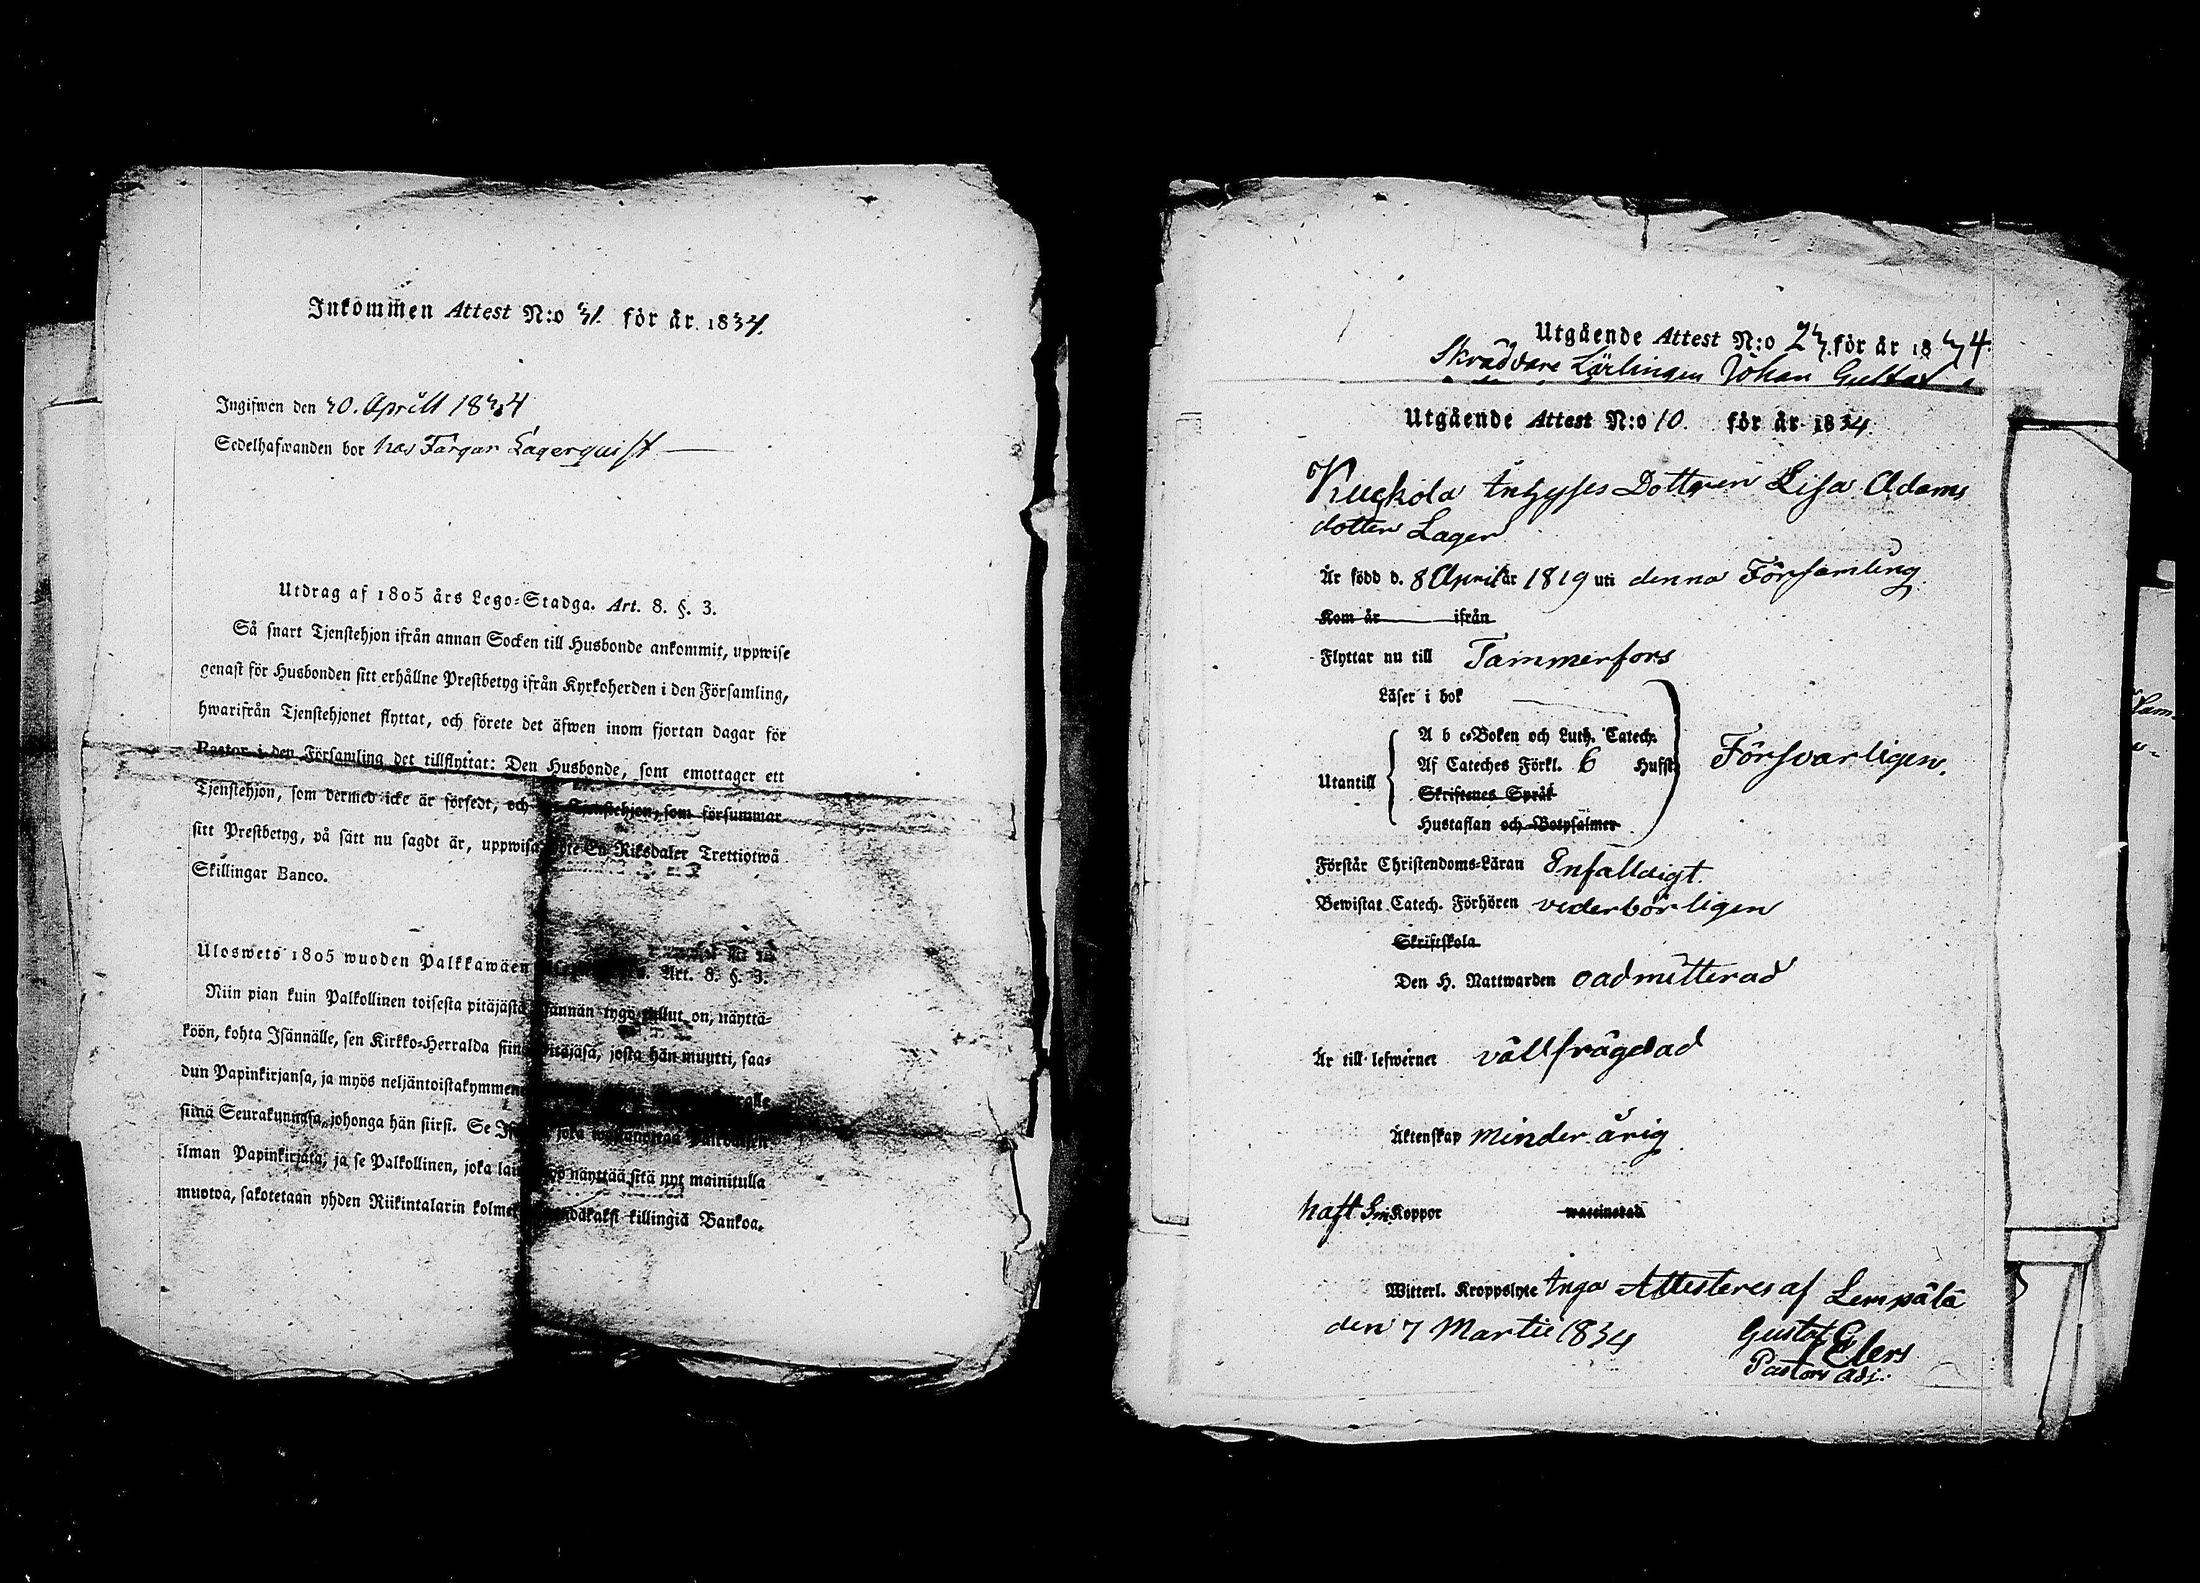 Inkommen Attest N:o 31. för år 1834.
Ingifwen den 30. Aprill 1834
Sedelhafwanden bor hos Färgar Lagerquist
Utdrag af 1805 års Lego-Stadga. Art. 8. §. 3.
Så snart Tjenstehjon ifrån annan Socken till Husbonde ankommit, uppwise
genast för Husbonden sitt erhållne Prestbetyg ifrån Kyrkoherden i den Församling,
hwarifrån Tjenstehjonet flyttat, och förete det äfwen inom fjortan dagar för
Pastor i den Församling det tillflyttat: Den Husbonde, som emottager ett
Tjenstehjon, som dermed icke är försedt, och Tjenstehjon, som försummar
sitt Prestbetyg, på sätt nu sagdt är, uppwisa En Riksdaler Trettiotwå
Skillingar Banco.
Ulosweto 1805 wuoden Palkkawäen Art. 8. §. 3.
Niin pian kuin Palkollinen toisesta pitäjästä Isännän tygö tullut on, näyttä-
köön, kohta Isännälle, sen Kirkko-Herralda siinä pitäjäsä, josta hän muutti, saa-
dun Papinkirjansa, ja myös neljäntoistakymmen
siinä Seurakunnasa, johonga hän siirsi. Se joka
ilman Papinkirjata, ja se Palkollinen, joka näyttää sitä nyt mainitulla
muotoa, sakotetaan yhden Riikintalarin kolme killingiä Bankoa.
Utgående Attest N:o 23. för år 1834.
Skräddare Lärlingen Johan Gustaf
Utgående Attest N:o 10. för år 1834.
Kuckola Inhyses Dottren Lisa Adams
dotter Lager
Är född d. 8 April år 1819 uti denna Församling
Kom år ifrån
Flyttar nu till Tammerfors
Läser i bok
A b c-Boken och Luth. Catech.
Af Cateches Förkl. 6 Hufst. Försvarligen.
Utantill
Skriftenes Språk
Hustaflan och Botpsalmer
Förstår Christendoms-Läran Enfalldigt
Bewistat Catech. Förhören vederbörligen
Skriftskola
Den H. Nattwarden oadmitterad
Är till lefwernet vällfrägdad
Äktenskap minderårig
haft Koppor waccinerad
Witterl. Kroppslyte Inga Attesteres af Lempälä
den 7 Martii 1834
Gustaf G
Elers
Pastors Adj.